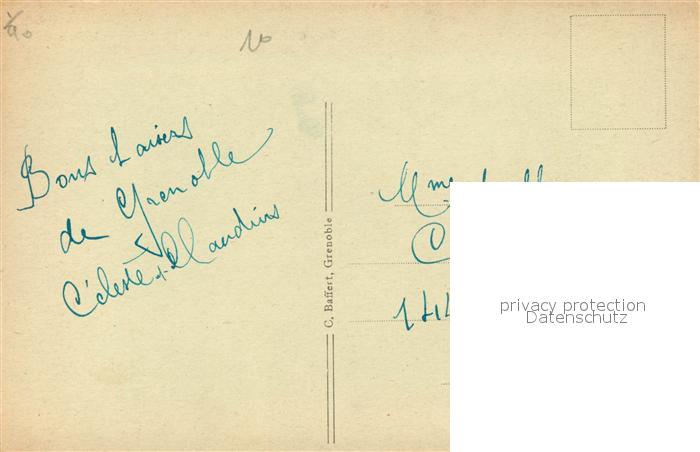 10
Bons baisers
de Grenoble
Céleste + Claudius
C. Baffert, Grenoble
Mme
privacy protection
Datenschutz